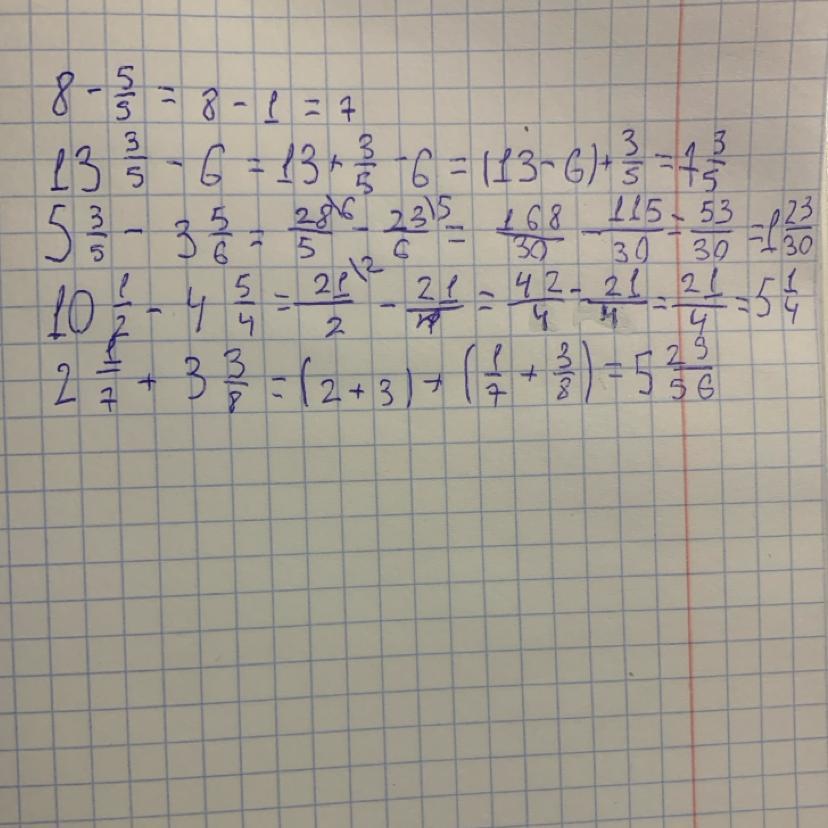 8 - 5/5 = 8 - 1 = 7
13 3/5 - 6 = 13 + 3/5 - 6 = (13 - 6) + 3/5 = 7 3/5
5 3/5 - 3 5/6 = 28\6/5 - 23\5/6 = 168/30 - 115/30 = 53/30 = 1 23/30
10 1/2 - 4 5/4 = 21\2/2 - 21/4 = 42/4 - 21/4 = 21/4 = 5 1/4
2 1/7 + 3 3/8 = (2 + 3) + (1/7 + 3/8) = 5 29/56